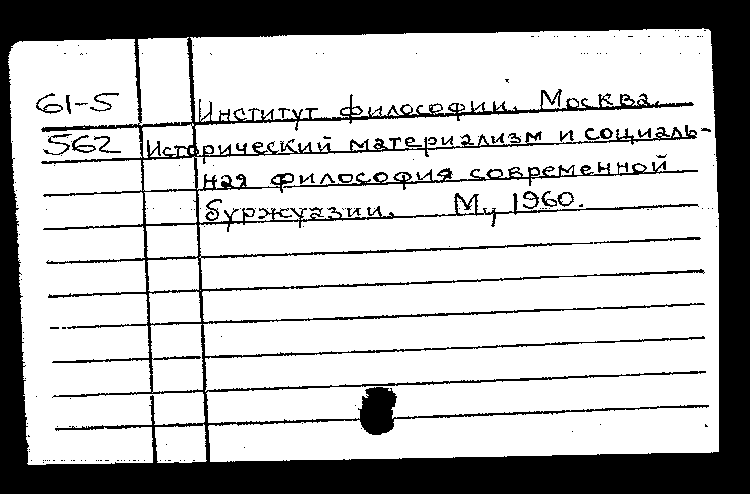 61-5 Институт философии. Москва.
562 Исторический материализм и социаль-
ная философия современной
буржуазии. М., 1960.